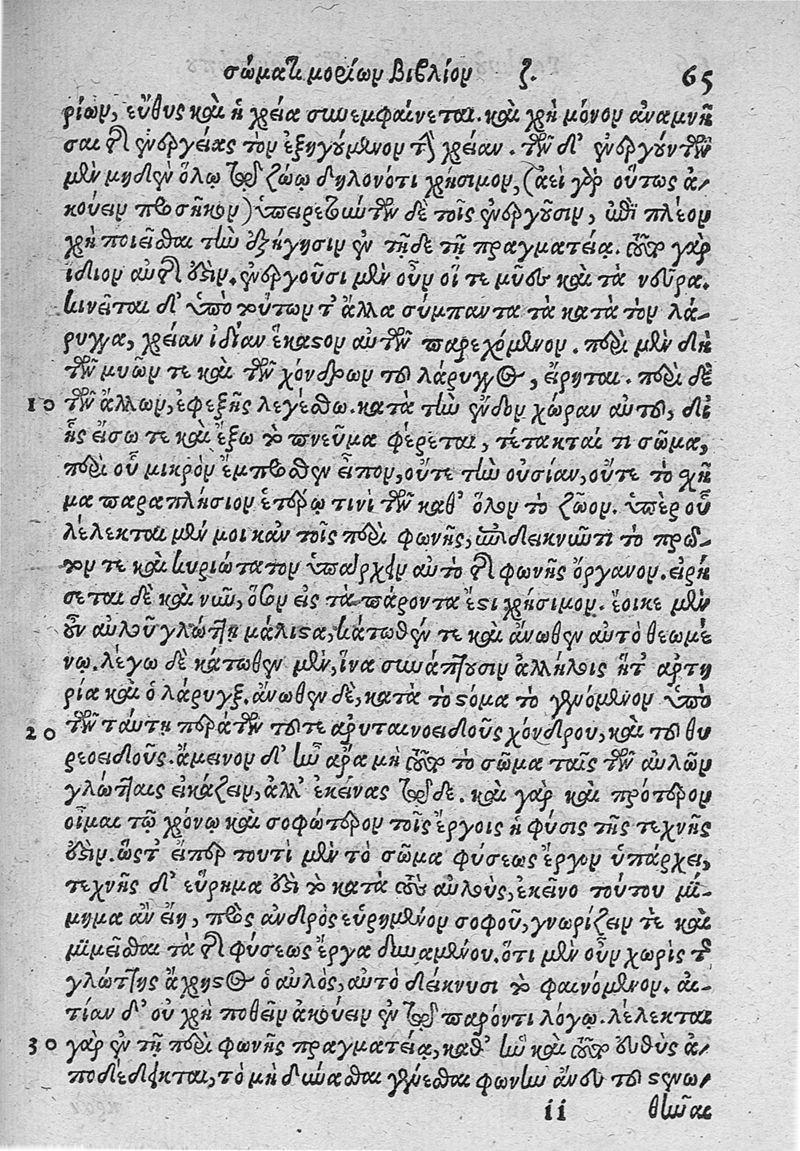 σώματι μορίων Βιβλίον ζ. 65
ρίων, εὔθυς καὶ ἡ χρεία συνεμφαίνεται. καὶ χρὴ μόνον ἀναμνῆ
σαι τῆς ἐνεργείας τὸν ἐξηγούμενον τὴν χρείαν. τῶν δ' ἐνεργούντων
μὲν μηδὲν ὅλῳ τῷ ζώῳ δηλονότι χρήσιμον, (ἀεὶ γὰρ οὕτως ἀ-
κούειν προσῆκον) ὑπηρετούντων δὲ τοῖς ἐνεργοῦσιν, ἐπὶ πλέον
χρὴ ποιεῖσθαι τὴν ἐξήγησιν ἐν τῇδε τῇ πραγματείᾳ. τοῦτο γὰρ
ἴδιον αὐτῆς ἐστιν. ἐνεργοῦσι μὲν οὖν οἵ τε μῦες καὶ τὰ νεῦρα.
κινεῖται δ' ὑπὸ τούτων τ' ἄλλα σύμπαντα τὰ κατὰ τὸν λά-
ρυγγα, χρείαν ἰδίαν ἕκαστον αὐτῶν παρεχόμενον. περὶ μὲν δὴ
10 τῶν μυῶν τε καὶ τῶν χόνδρων τοῦ λάρυγγος, εἴρηται. περὶ δὲ
τῶν ἄλλων, ἐφεξῆς λεγέσθω. κατὰ τὴν ἔνδον χώραν αὐτοῦ, δι'
ἧς εἴσω τε καὶ ἔξω τὸ πνεῦμα φέρεται, τέτακταί τι σῶμα,
περὶ οὗ μικρὸν ἔμπροσθεν εἶπον, οὔτε τὴν οὐσίαν, οὔτε τὸ σχῆ
μα παραπλήσιον ἑτέρῳ τινὶ τῶν καθ' ὅλον τὸ ζῶον. ὑπὲρ οὗ
λέλεκται μέν μοι κἀν τοῖς περὶ φωνῆς, ἐπιδεικνῦντι τὸ πρῶ-
τον τε καὶ κυριώτατον ὑπάρχειν αὐτὸ τῆς φωνῆς ὄργανον. εἰρή
σεται δὲ καὶ νῦν, ὅσον εἰς τὰ πάροντα ἐστι χρήσιμον. ἔοικε μὲν
οὖν αὐλοῦ γλώττῃ μάλιστα, κάτωθέν τε καὶ ἄνωθεν αὐτὸ θεωμέ
νῳ. λέγω δὲ κάτωθεν μὲν, ἵνα συνάπτουσιν ἀλλήλοις ἥτ' ἀρτη
ρία καὶ ὁ λάρυγξ. ἄνωθεν δὲ, κατὰ τὸ στόμα τὸ γενόμενον ὑπὸ
20 τῶν ταύτῃ περάτων τοῦ τε ἀρυταινοειδοῦς χόνδρου, καὶ τοῦ θυ
ρεοειδοῦς. ἄμεινον δ' ἦν ἄρα μὴ τοῦτο τὸ σῶμα ταῖς τῶν αὐλῶν
γλώτταις εἰκάζειν, ἀλλ' ἐκείνας τῷδε. καὶ γὰρ καὶ πρότερον
οἶμαι τῷ χρόνῳ καὶ σοφώτερον τοῖς ἔργοις ἡ φύσις τῆς τεχνῆς
ἐστιν. ὥστ' εἴπερ τουτὶ μὲν τὸ σῶμα φύσεως ἔργον ὑπάρχει,
τεχνῆς δ' εὕρημα ἐστὶ τὸ κατὰ τοὺς αὐλοὺς, ἐκεῖνο τούτου μί-
μημα ἂν εἴη, πρὸς ἀνδρὸς εὑρημένον σοφοῦ, γνωρίζειν τὲ καὶ
μιμεῖσθαι τὰ τῆς φύσεως ἔργα δυναμένου. ὅτι μὲν οὖν χωρὶς τῆς
γλώττης ἄχρηστος ὁ αὐλὸς, αὐτὸ δείκνυσι τὸ φαινόμενον. αἰ-
τίαν δ' οὐ χρὴ ποθεῖν ἀκούειν ἐν τῷ παρόντι λόγῳ. λέλεκται
30 γὰρ ἐν τῇ περὶ φωνῆς πραγματείᾳ, καθ' ἣν καὶ τοῦτο εὐθὺς ἀ-
ποδέδεικται, τὸ μὴ δύνασθαι γενέσθαι φωνὴν ἄνευ τοῦ στενω-
ii θῆναι